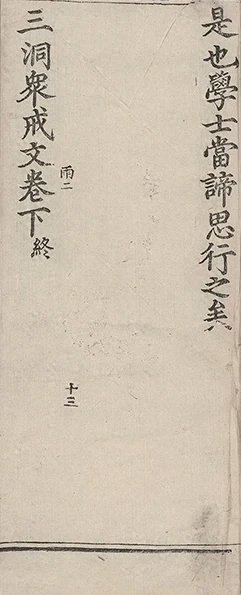 是也學士當諦思行之矣
雨二
十三
三洞衆戒文卷下終